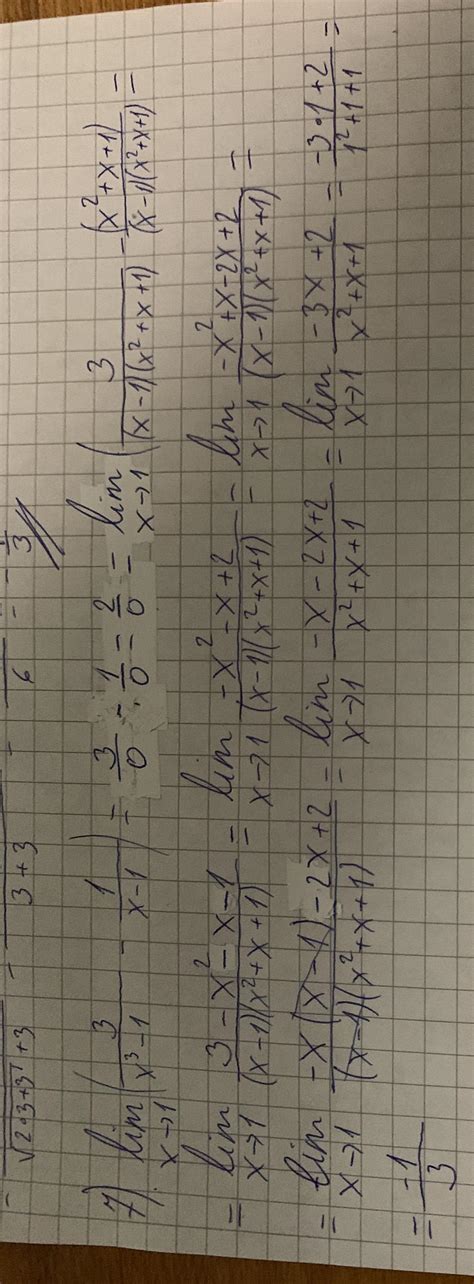 √2·3+3 +3 3+3 6 3
7) lim x→1 (3/(x³-1) - 1/(x-1)) = 3/0 - 1/0 = 2/0 = lim x→1 (3/((x-1)(x²+x+1)) - (x²+x+1)/((x-1)(x²+x+1)) =
= lim x→1 (3-x²-x-1)/((x-1)(x²+x+1)) = lim x→1 (-x²-x+2)/((x-1)(x²+x+1)) = lim x→1 (-x²+x-2x+2)/((x-1)(x²+x+1)) =
= lim x→1 (-x(x-1)-2x+2)/((x-1)(x²+x+1)) = lim x→1 (-x-2x+2)/(x²+x+1) = lim x→1 (-3x+2)/(x²+x+1) = (-3·1+2)/(1²+1+1)
= -1/3